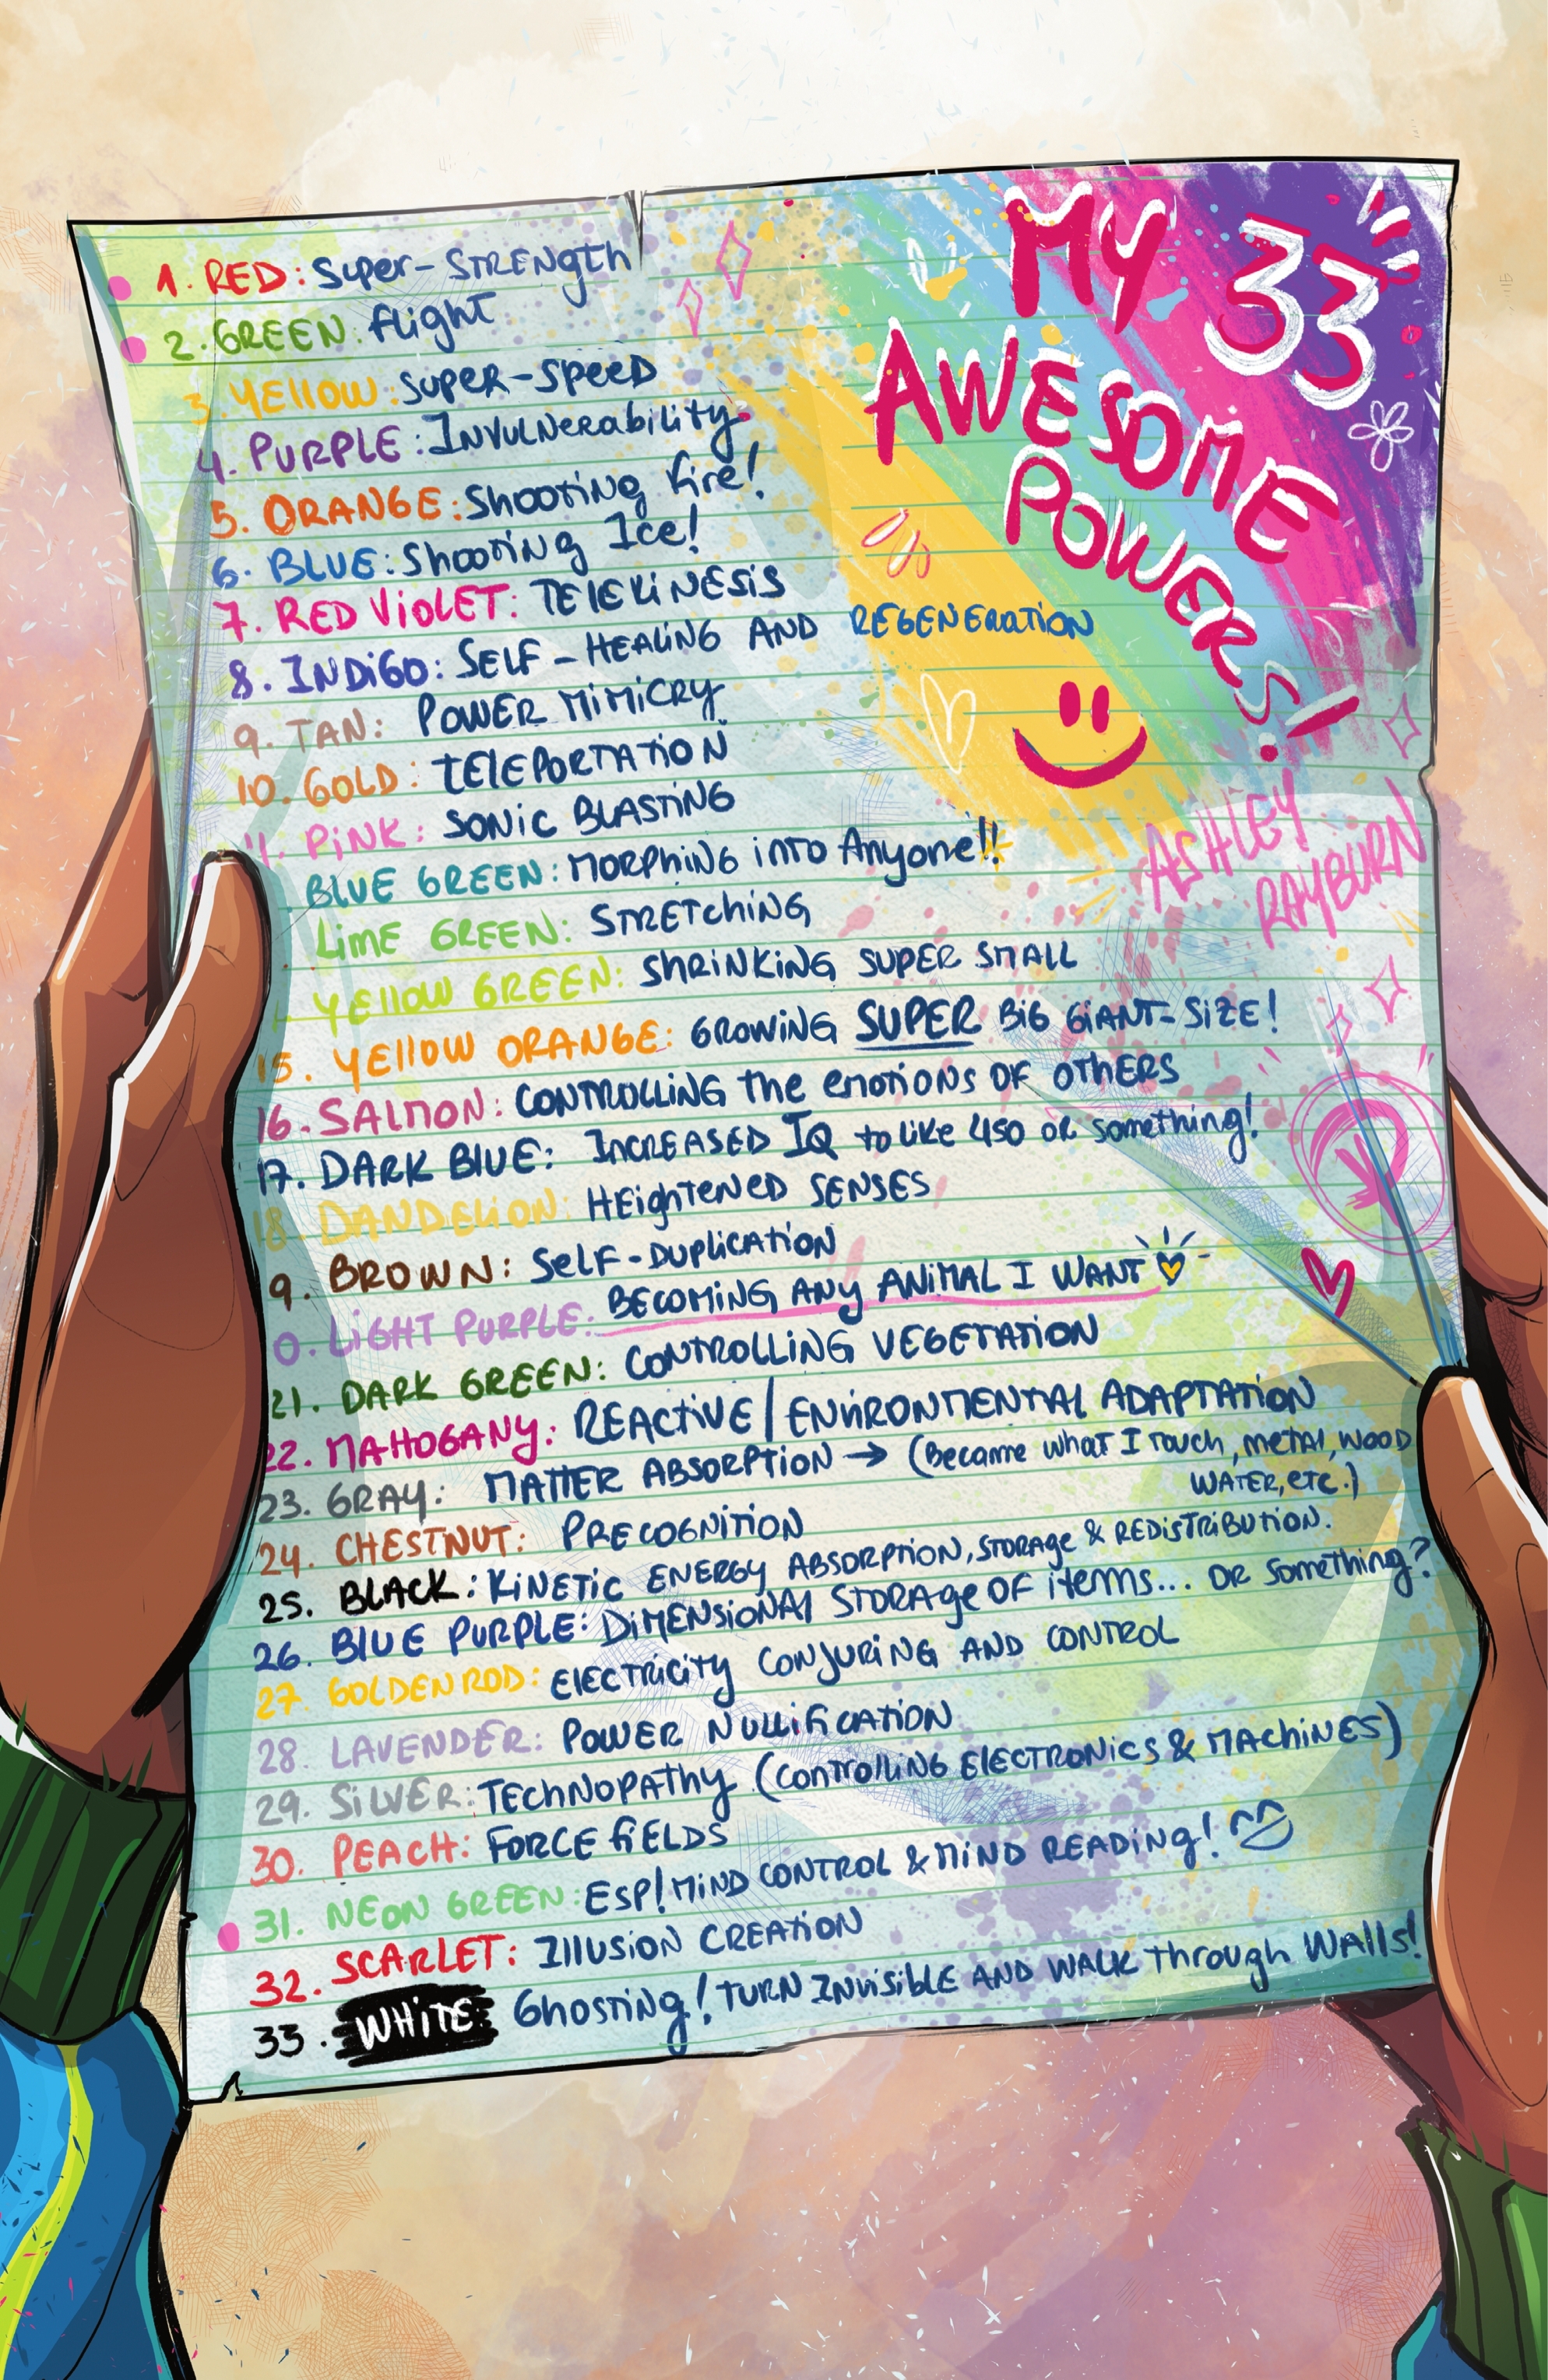 MY 33
AWESOME
POWERS!
ASHLEY
RAYBURN
1. RED: Super-STRENgth
2. GREEN: flight
3. YEllOW: SUPER-SPEED
4. PURPLE: INVULNerability
5. ORANGE: Shooting fire!
6. BLUE: Shooting Ice!
7. RED ViOLET: TElEKiNESiS
8. INDiGO: SELF-HEALING AND REGENERATION
9. TAN: POWER MiMiCRY
10. GOLD: tElEPORTATiON
11. PiNK: SONiC BLASTiNG
BLUE GREEN: MORPhiNG iNTO Anyone!!
LiME GREEN: STRETChiNG
YEllOW GREEN: ShRiNKiNG SUPER SMALL
15. YEllOW ORANGE: GROWiNG SUPER BiG GiANT-SiZE!
16. SALMON: CONTROLLiNG the emotions OF OTHERS
17. DARK BLUE: INCREASED IQ to like 450 or something!
18. DANDELiON: HEightENED SENSES
9. BROWN: SElF-DUPliCATiON
0. LiGHT PURPLE: BECOMiNG ANy ANiMAL I WANT
21. DARK GREEN: CONTROLLiNG VEGETATiON
22. MAHOGANy: REACTiVE/ENViRONMENTAl ADAPTATiON
23. GRAY: MATTER ABSORPTiON → (Became what I touch, metal, WOOD
WATER, etc.)
24. CHESTNUT: PRECOGNiTiON
25. BLACK: KiNETiC ENERGY ABSORPTiON, STORAGE & REDiSTRiBUTiON.
26. BLUE PURPLE: DiMENSiONAl STORAge OF items... OR Something?
27. GOLDENROD: ElECTRiCiTY CONJURiNG AND CONTROL
28. LAVENDER: POWER NUlliFiCATiON
29. SiLVER: TEChNOPAThy (CONTROlliNG ElECTRONiCS & MAChiNES)
30. PEACH: FORCE fiELDS
31. NEON GREEN: ESP! MiND CONTROL & MiND READiNG!
32. SCARLET: IllUSiON CREATiON
33. WHiTE Ghosting! TURN INVisiblE AND WALK Through WAlls!